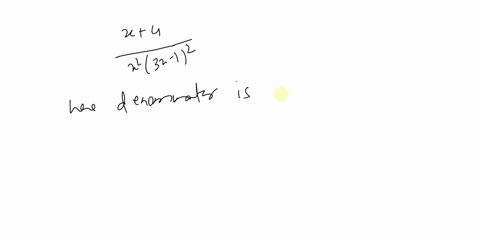 x+4
x²(3x-1)²
here denominator is